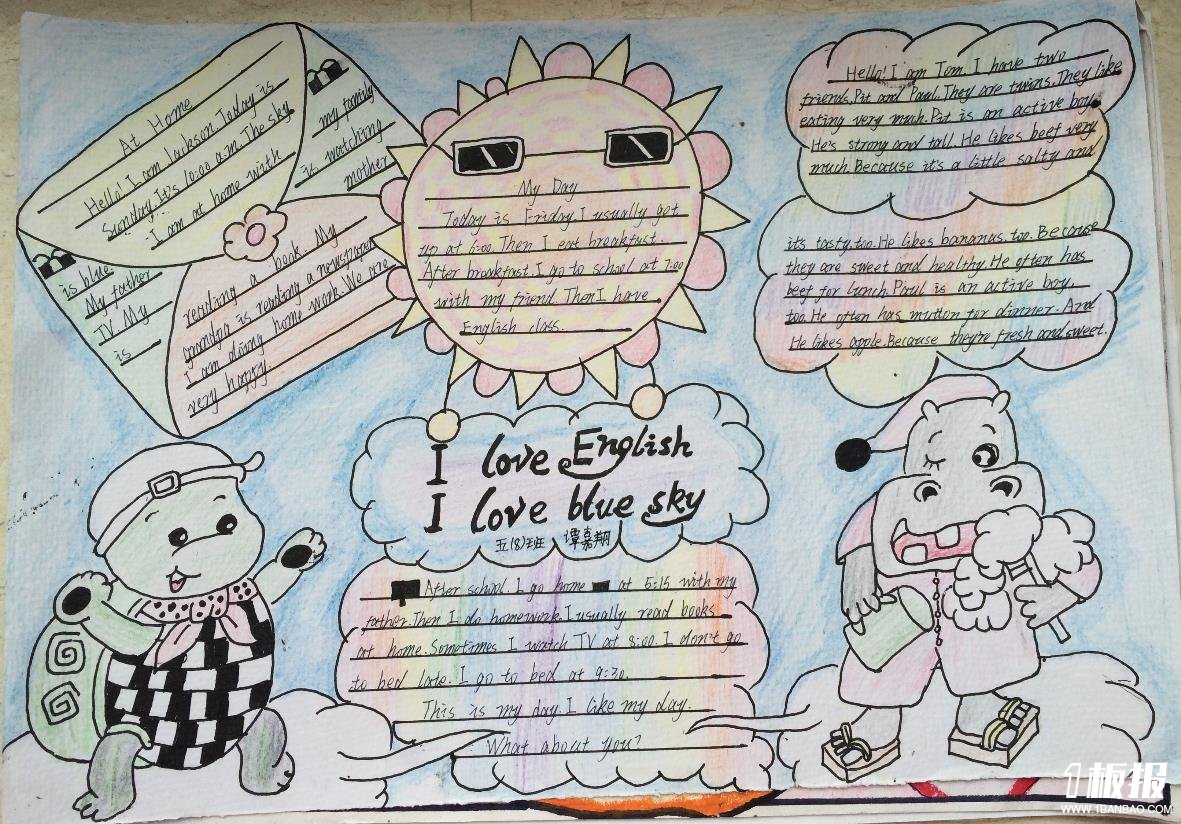 At Home
Hello! I am Jackson. Today is
Sunday. It's 10:00 a.m. The sky
I am at home with
my family
is watching
mother
is blue.
My father
TV. My
is
reading a book. My
grandpa is reading a newspaper
I am doing home work. We are
very happy.
My Day
Today is Friday. I usually get
up at 6:00. Then I eat breakfast.
After breakfast. I go to school at 7:00
with my friend. Then I have
English class.
I love English
I love blue sky
五(8)班 谭嘉翔
After school. I go home at 5:15 with my
father. Then I do homework. I usually read books
at home. Sometimes I watch TV at 8:00. I don't go
to bed late. I go to bed at 9:30.
This is my day. I like my day.
What about you?
Hello! I am Tom. I have two
friends. Pit and Paul. They are twins. They like
eating very much. Pit is an active boy.
He's strong and tall. He likes beef very
much. Because it's a little salty and
its tasty, too. He likes bananas. too. Because
they are sweet and healthy. He often has
beef for lunch. Paul is an active boy,
too. He often has mutton for dinner. And
He likes apple. Because they're fresh and sweet.
1板报
WWW.1BANBAO.COM